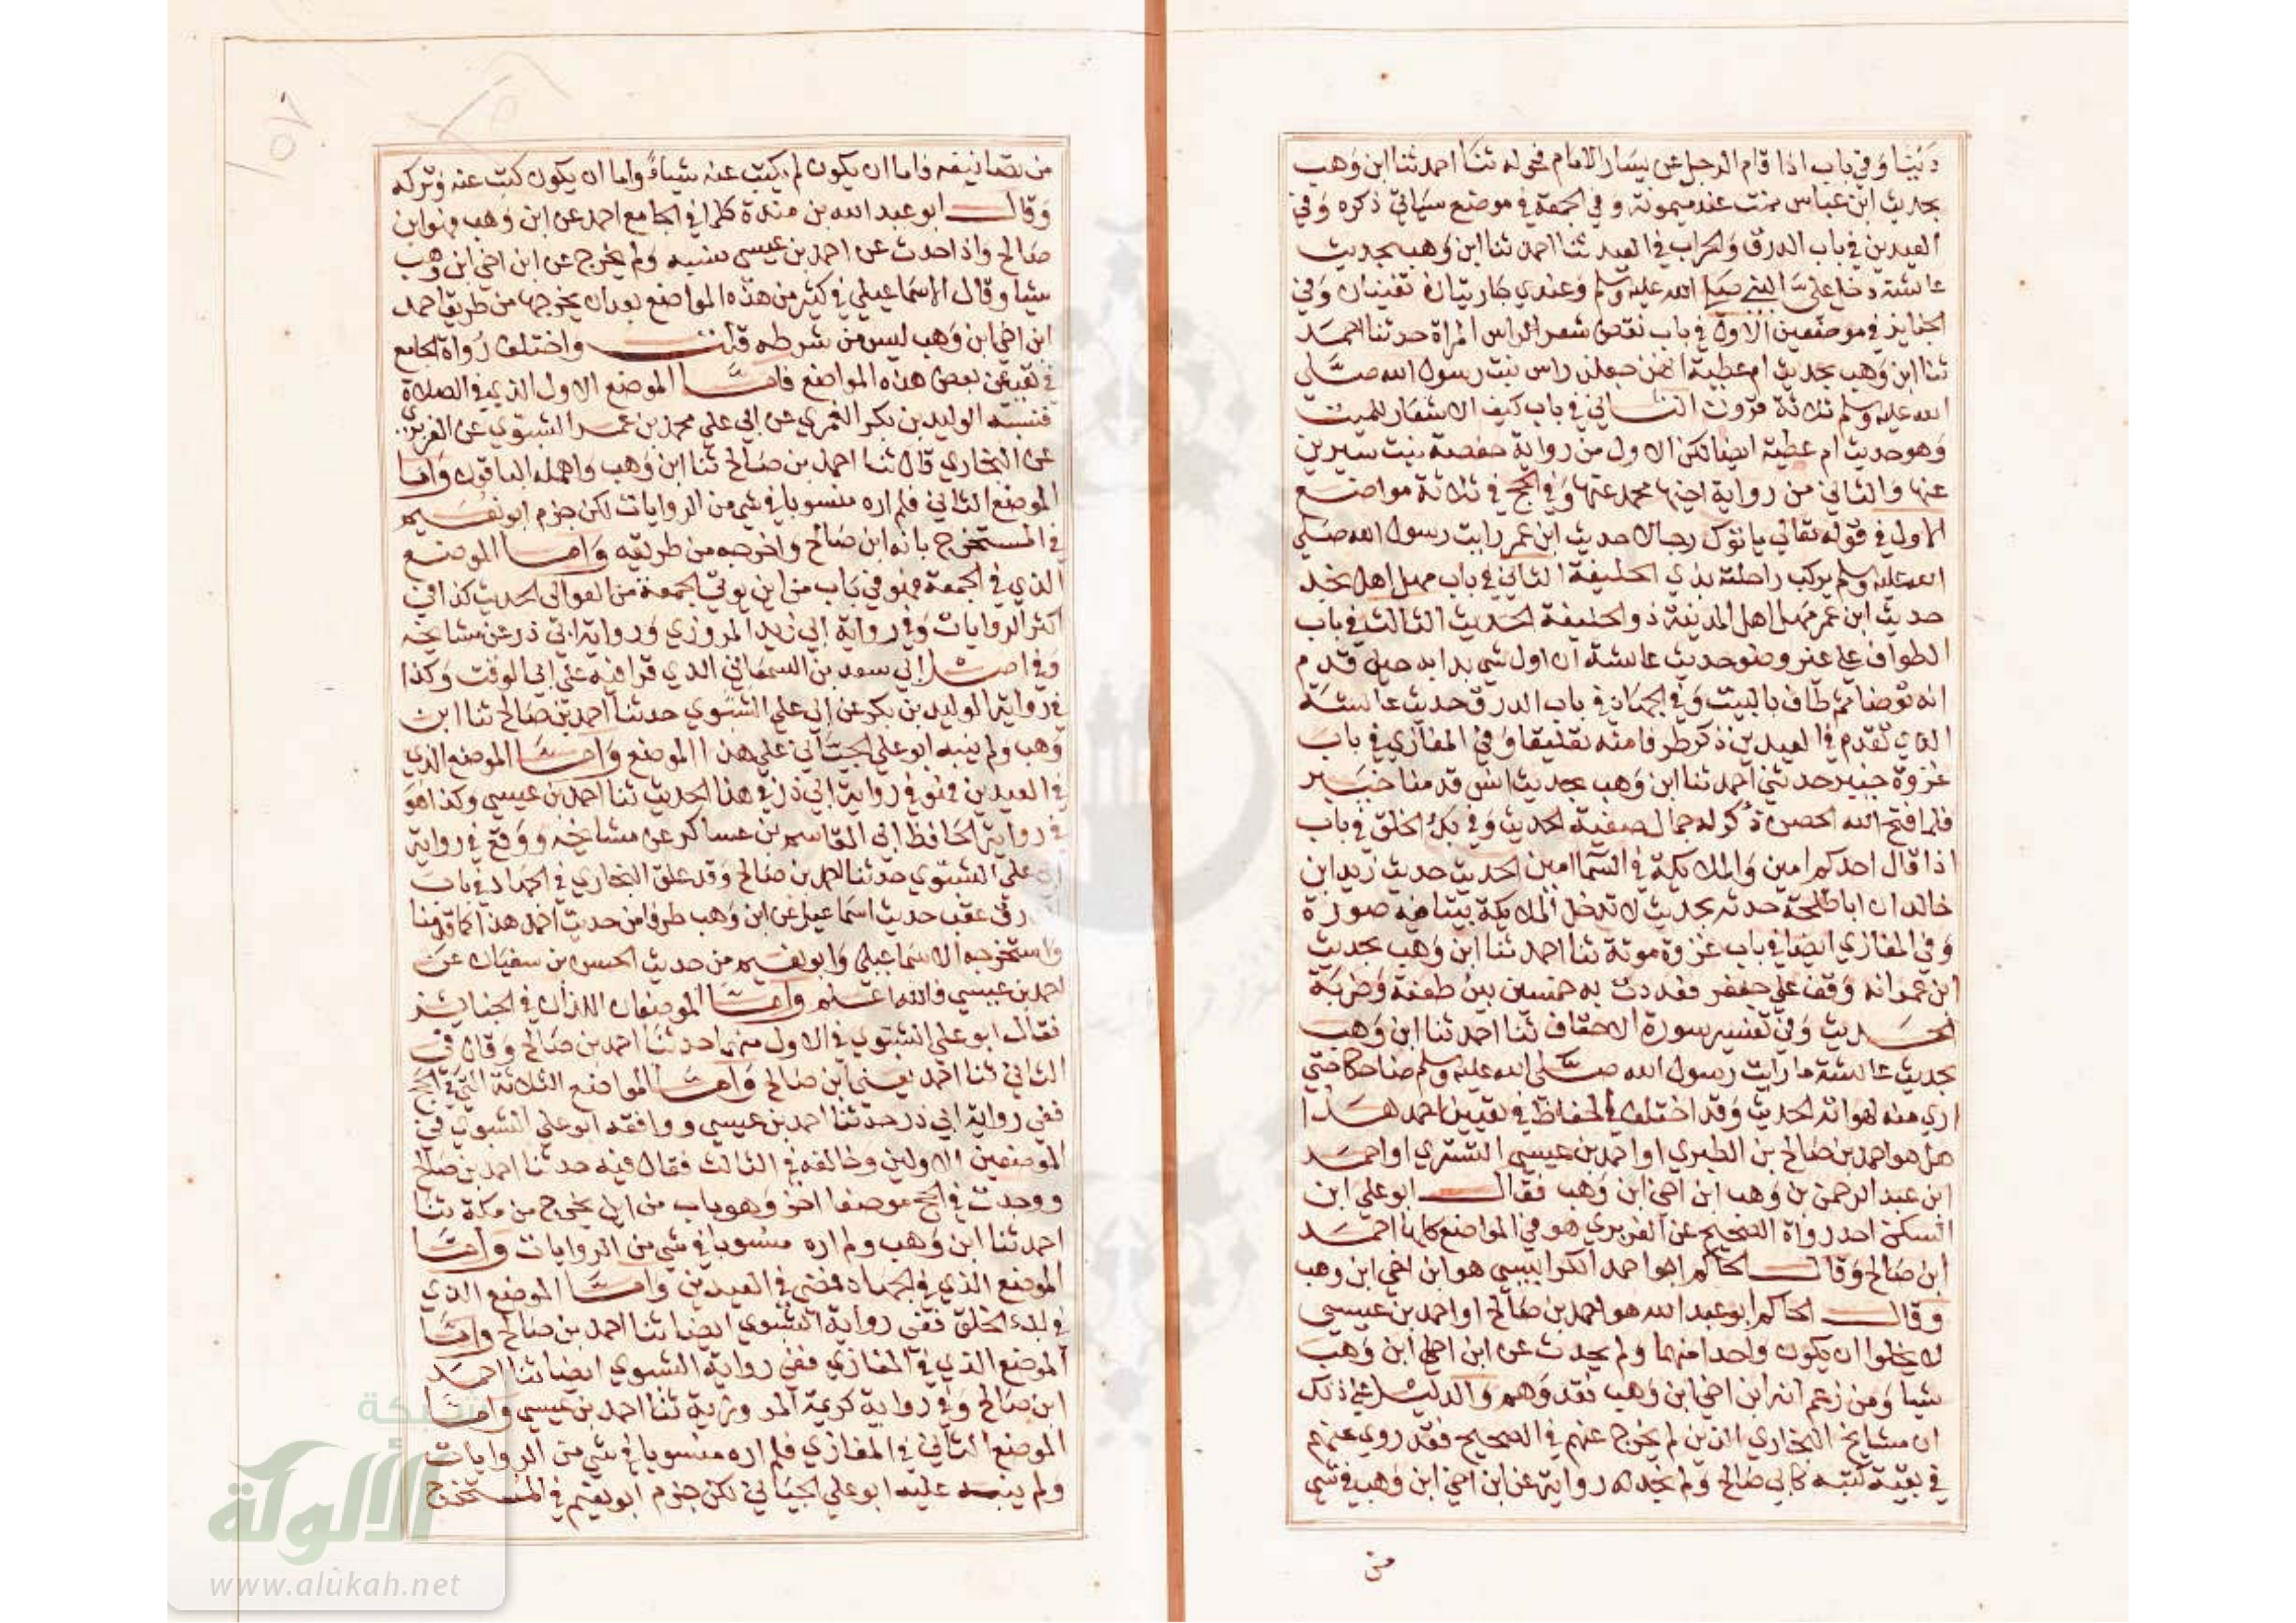 دنيا وفي باب اذا قام الرجل عن يسار الامام فحوله ثنا احمد ثنا ابن وهب
بحديث ابن عباس نمت عند ميمونة وفي الجمعة في موضع سياتي ذكره وفي
العيدين في باب الدرق والحراب في العيد ثنا احمد ثنا ابن وهب بحديث
عائشة دخل علي النبي صلى الله عليه وسلم وعندي جاريتان تغنيان وفي
الجنايز في موضعين الاول في باب نقض شعر الراس المراة حدثنا احمد
ثنا ابن وهب بحديث ام عطية انهن جعلن راس بنت رسول الله صلى
الله عليه وسلم ثلاثة قرون الثاني في باب كيف الاشعار للميت
وهو حديث ام عطية ايضا لكن الاول من رواية حفصة بنت سيرين
عنها والثاني من رواية اخيها محمد عنها وفي الحج في ثلاثة مواضع
الاول في قوله تعالى ياتوك رجالا حديث ابن عمر رايت رسول الله صلى
الله عليه وسلم يركب راحلته بذي الحليفة الثاني في باب مهل اهل نجد
حديث ابن عمر مهل اهل المدينة ذو الحليفة الحديث الثالث في باب
الطواف على غير وضو حديث عائشة ان اول شي بدا به حين قدم
انه توضا ثم طاف بالبيت وفي الجهاد في باب الدرق حديث عائشة
الذي تقدم في العيدين ذكر طرفا منه تعليقا وفي المغازي في باب
غزوة خيبر حدثني احمد ثنا ابن وهب بحديث انس قدمنا خيبر
فلما فتح الله الحصن ذكر له جمال صفية الحديث وفي بدء الخلق في باب
اذا قال احدكم امين والملايكة في السما امين الحديث حديث زيد ابن
خالد ان ابا طلحة حدثه بحديث لا تدخل الملايكة بيتا فيه صورة
وفي المغازي ايضا في باب غزوة موتة ثنا احمد ثنا ابن وهب بحديث
ابن عمر انه وقف على جعفر فعددت به خمسين بين طعنة وضربة
الحديث وفي تفسير سورة الاحقاف ثنا احمد ثنا ابن وهب
بحديث عائشة ما رايت رسول الله صلى الله عليه وسلم ضاحكا حتى
ارى منه لهواته الحديث وقد اختلف الحفاظ في تعيين احمد هذا
هل هو احمد بن صالح بن الطبري او احمد بن عيسى التستري او احمد
ابن عبد الرحمن بن وهب ابن اخي ابن وهب فقال ابو علي ابن
السكن احد رواة الصحيح عن الفربري هو في المواضع كلها احمد
ابن صالح وقال الحاكم ابو احمد الكرابيسي هو ابن اخي ابن وهب
وقال الحاكم ابو عبد الله هو احمد بن صالح او احمد بن عيسى
لا يخلوا ان يكون واحدا منهما ولم يحدث عن ابن اخي ابن وهب
شيا ومن زعم انه ابن اخي ابن وهب فقد وهم والدليل على ذلك
ان مشايخ البخاري الذين لم يخرج عنهم في الصحيح فقد روى عنهم
في بقية كتبه كابي صالح ولم نجد له رواية عن ابن اخي ابن وهب في شي
من
من تصانيفه فاما ان يكون لم يكتب عنه شياء واما ان يكون كتب عنه وتركه
وقال ابو عبد الله بن مندة كلما في الجامع احمد عن ابن وهب فهو ابن
صالح واذا حدث عن احمد بن عيسى نسبه ولم يخرج عن ابن اخي ابن وهب
شيا وقال الاسماعيلي في كثير من هذه المواضع بعد ان يخرجها من طريق احمد
ابن اخي ابن وهب ليس من شرطه قلت واختلف رواة الجامع
في تعيين بعض هذه المواضع فاما الموضع الاول الذي في الصلاة
فنسبه الوليد بن بكر الغمري عن ابي علي محمد بن عمر الشبوي عن الفربري
عن البخاري قال ثنا احمد بن صالح ثنا ابن وهب واهمله الباقون واما
الموضع الثاني فلم اره منسوبا في شي من الروايات لكن جزم ابو نعيم
في المستخرج بانه ابن صالح واخرجه من طريقه واما الموضع
الذي في الجمعة فهو في باب من اين يوتى الجمعة من العوالى الحديث كذا في
اكثر الروايات وفي رواية ابي زيد المروزي ورواية ابي ذر عن مشايخه
وفي اصل ابي سعد بن السمعاني الذي قرا فيه على ابي الوقت وكذا
في رواية الوليد بن بكر عن ابي علي الشبوي حدثنا احمد بن صالح ثنا ابن
وهب ولم ينبه ابو علي الجياني على هذا الموضع واما الموضع الذي
في العيدين فهو في رواية ابي ذر في هذا الحديث ثنا احمد بن عيسى وكذا هو
في رواية الحافظ ابي القاسم بن عساكر عن مشايخه ووقع في رواية
ابي علي الشبوي حدثنا احمد بن صالح وقد علق البخاري في الجهاد في باب
الدرق عقب حديث اسماعيل عن ابن وهب طرفا من حديث احمد هذا كما قدمنا
واستخرجه الاسماعيلي وابو نعيم من حديث الحسن بن سفيان عن
احمد بن عيسى فالله اعلم واما الموضعان اللذان في الجنايز
فقال ابو علي الشبوي في الاول منهما حدثنا احمد بن صالح وقال في
الثاني ثنا احمد يعني ابن صالح واما المواضع الثلاثة التي في الحج
ففي رواية ابي ذر حدثنا احمد بن عيسى ووافقه ابو علي الشبوي في
الموضعين الاولين وخالفه في الثالث فقال فيه حدثنا احمد بن صالح
ووجدت في الحج موضعا اخر وهو باب من اين يخرج من مكة ثنا
احمد ثنا ابن وهب ولم اره منسوبا في شي من الروايات واما
الموضع الذي في الجهاد فمضى في العيدين واما الموضع الذي
في بدء الخلق ففي رواية الشبوي ايضا ثنا احمد بن صالح واما
الموضع الذي في المغازي ففي رواية الشبوي ايضا ثنا احمد
ابن صالح وفي رواية كريمة المروزية ثنا احمد بن عيسى واما
الموضع الثاني في المغازي فلم اره منسوبا في شي من الروايات
ولم ينبه عليه ابو علي الجياني لكن جزم ابو نعيم في المستخرج
شبكة
الألوكة
www.alukah.net